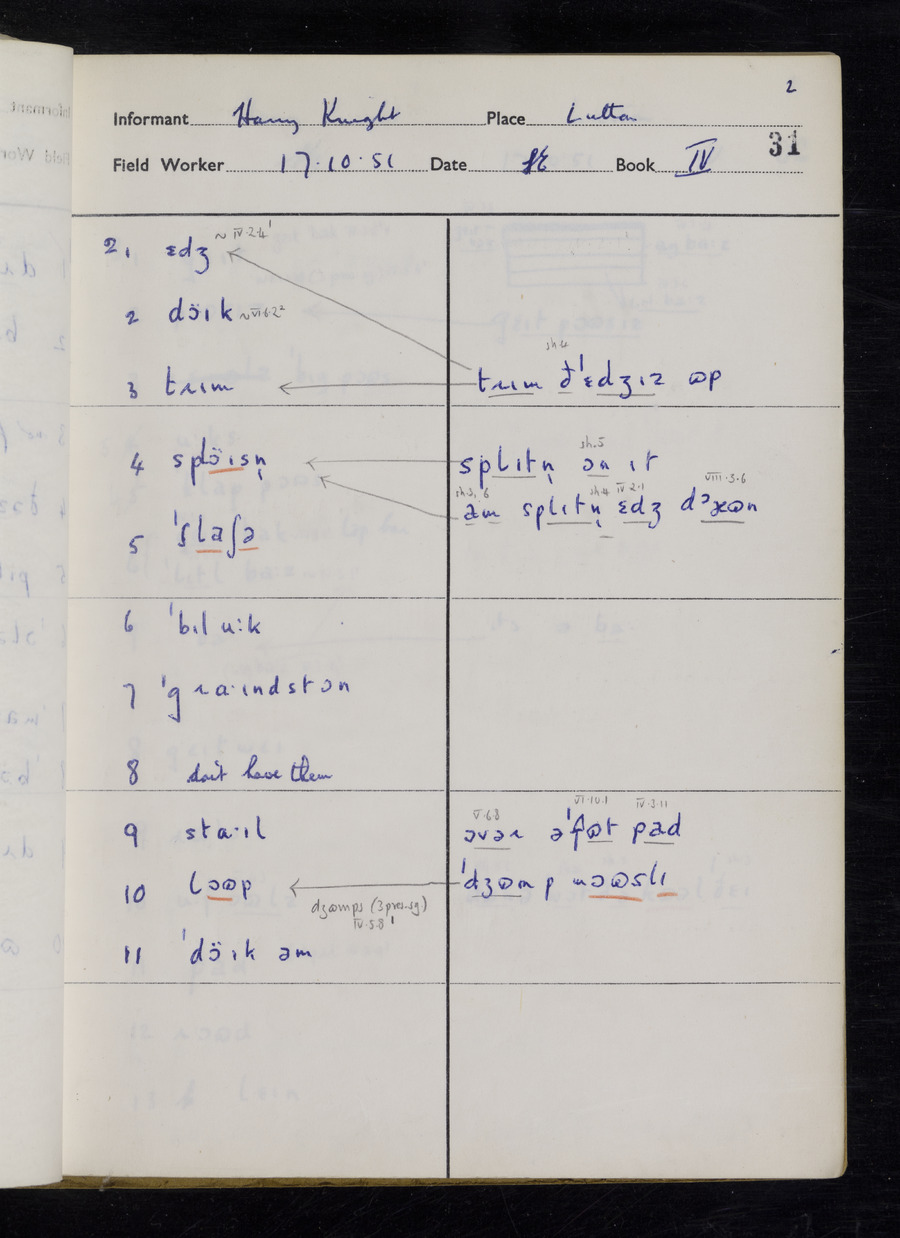 2
Informant Harry Knight Place Lutton
31
Field Worker 17.10.51 Date SE Book IV
2. 1 ɛdʒ ~ IV.2.4¹
2 dɔ̈ɪk ~VI.6.2²
3 tɹɪm
sh.4
tɹɪm ð'ɛdʒɪz ɷp
4 splɔ̈ɪsn̩
sh.5
splɪtn̩ ɔn ɪt
sh.3, 6 sh.4 IV.2.1 VIII.3.6
am splɪtn̩ ɛdʒ dəɷn
5 ˈslaʃə
6 ˈbɪl uːk
7 ˈgɹaˑɪndstɔn
8 don't have them
9 staˑɪl
V.6.8 VI.10.1 IV.3.11
ɔvəɹ əˈfɷt pad
10 lɔɷp
ˈdʒɷmp ɹɔɷslɪ
dʒɷmps (3 pres. sg)
IV.5.8¹
11 ˈdɔ̈ɪk əm